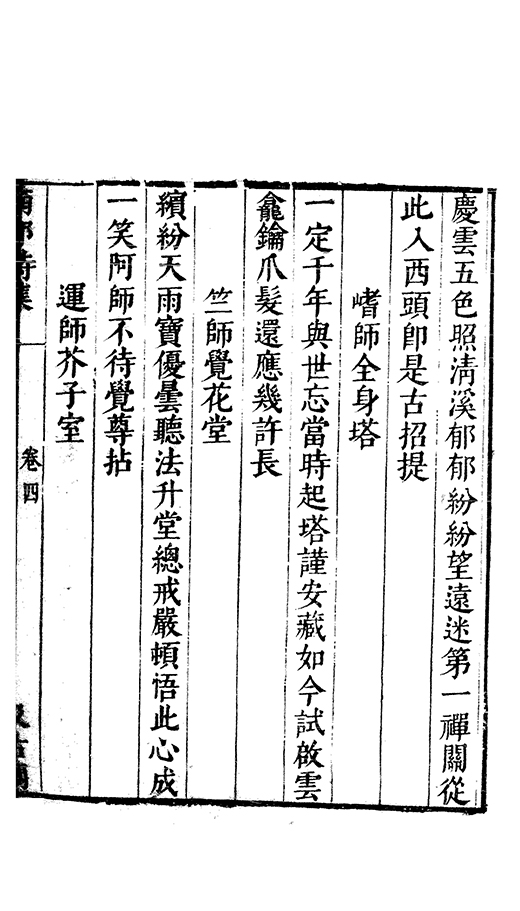 慶雲五色照清溪郁郁紛紛望遠迷第一禪關從
此入西頭卽是古招提
嗜師全身塔
一定千年與世忘當時起塔謹安藏如今試啟雲
龕鑰爪髮還應幾許長
竺師覺花堂
繽紛天雨寶優曇聽法升堂總戒嚴頓悟此心成
一笑阿師不待覺尊拈
運師芥子室
卷四